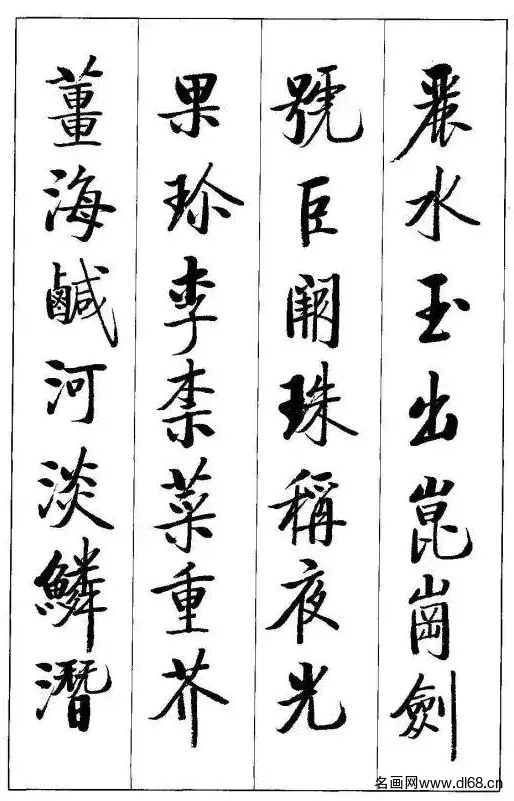 麗水玉出崑崗劍
號巨闕珠稱夜光
果珍李柰菜重芥
薑海鹹河淡鱗潛
名画网www.dl68.cn